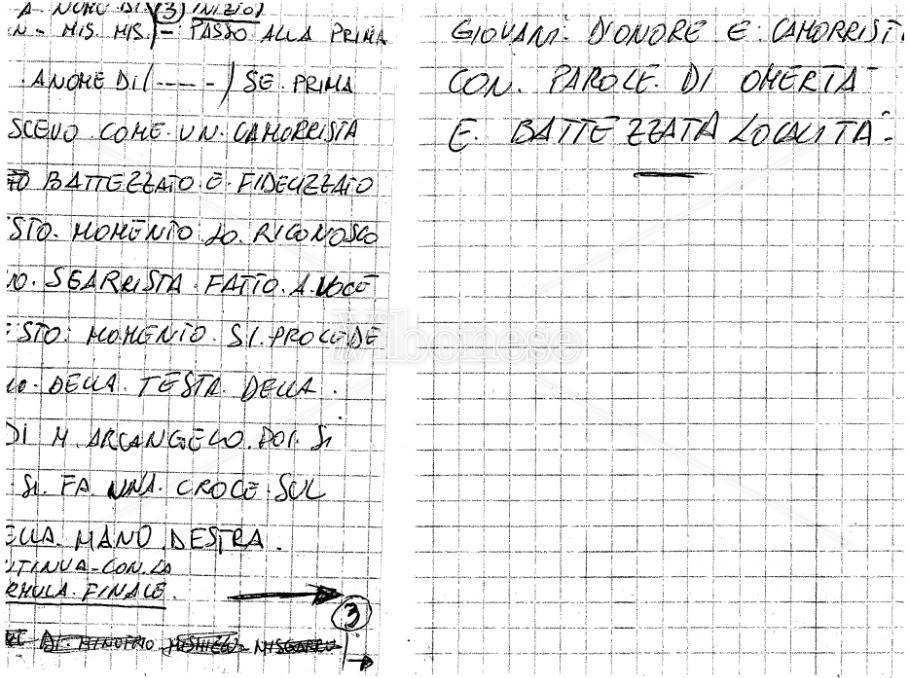 A NOME DI (3) INIZIO)
N - MIS. MIS.) - PASSO ALLA PRIMA
A NOME DI (-----) SE PRIMA
SCEVO COME UN CAMORRISTA
TO BATTEZZATO E FIDELIZZATO
STO MOMENTO LO RICONOSCO
NO. SGARRISTA FATTO A VOCE
ESTO MOMENTO SI PROCEDE
DELLA TESTA DELLA
DI M. ARCANGELO POI SI
SI FA UNA CROCE SUL
ELLA MANO DESTRA.
NTINUA-CON.LA
RMULA FINALE.
3
GIOVANI D'ONORE E CAMORRISTI
CON PAROLE DI OMERTA-
E BATTEZZATA LOCALITA-
Vibonese